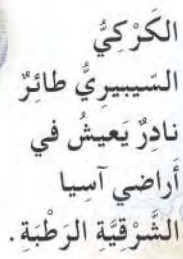 الكَرْكِيُّ
السّيبيرِيُّ طائِرٌ
نادِرٌ يَعيشُ في
أَراضي آسِيا
الشَّرْقِيَّةِ الرَطْبَةِ.